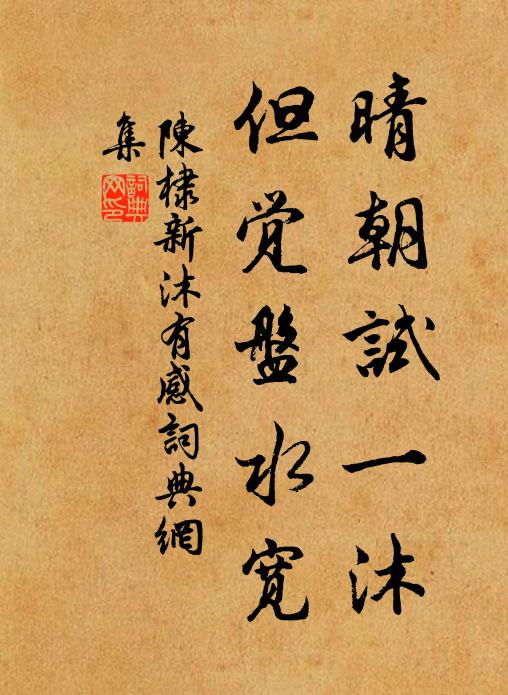 晴朝試一沐
但觉盤水宽
陳棣新沐有感詞典網
集
詞典
网印